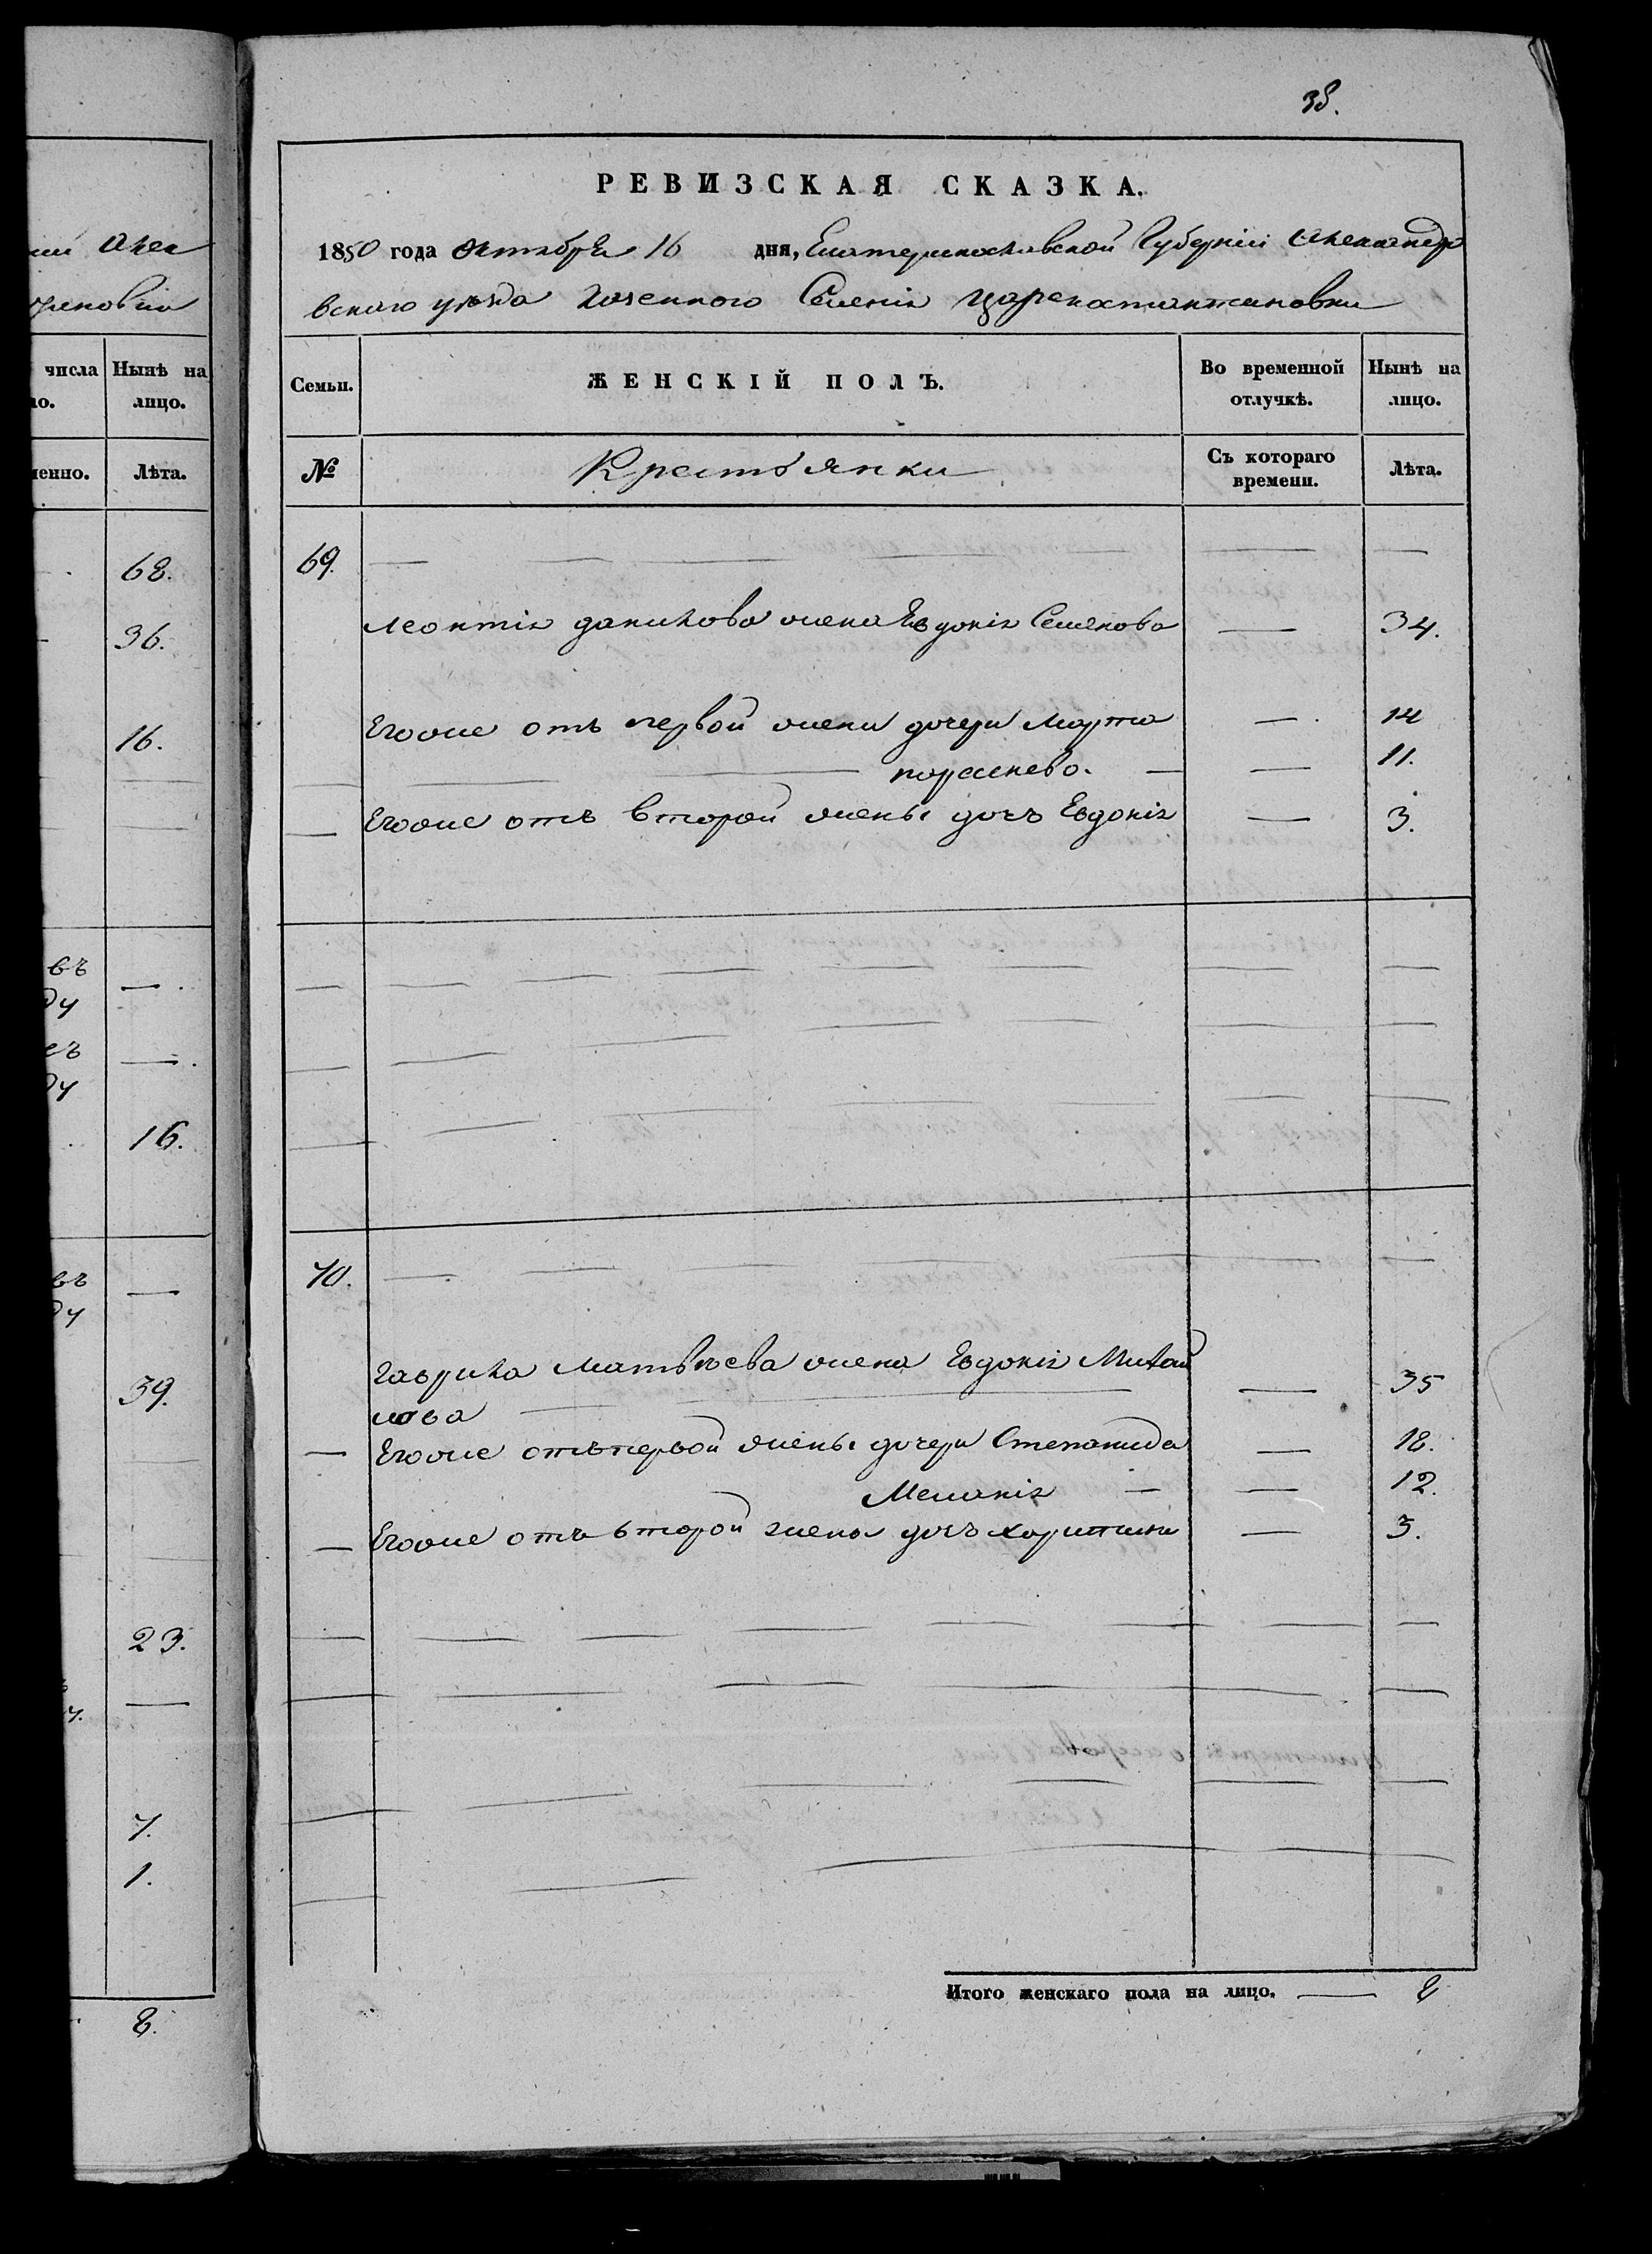 38.
РЕВИЗСКАЯ СКАЗКА.
1850 года октября 16 дня, Екатеринославской Губернии Александро
вского уезда казенного Селения Цареконстантиновки
Семьи.
ЖЕНСКІЙ ПОЛЪ.
Во временной отлучкѣ.
Нынѣ на лицо.
№
Крестьянки
Съ котораго времени.
Лѣта.
69.
Леонтія данилова жена Евдокія Семенова — 34.
Егоже отъ первой жены дочери Марфа — 14
— 11.
Егоже отъ второй жены дочъ Евдокія — 3.
70.
Гаврила Матвѣева жена Евдокія Михай
лова — 35
Егоже отъ первой жены дочери Степанида — 18.
Меланія — 12.
Егоже отъ второй жены дочъ харитина — 3.
Итого женскаго пола на лицо. — 8
числа
Нынѣ на лицо.
Лѣта.
68.
36.
16.
въ
ду
ду
16.
въ
ду
39.
23.
7.
1.
8.